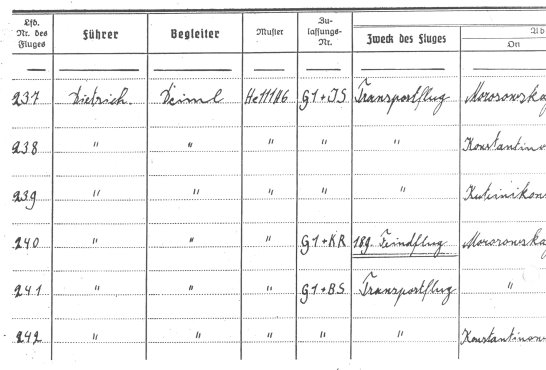 Lfd. Nr. des Fluges Führer Begleiter Muster Zu-lassungs-Nr. Zweck des Fluges Ab
Ort
237 Dietrich. Deiml He111H6 G1+JS Transportflug Morosowska
238 " " " " " Konstantino
239 " " " " " Kuteinikow
240 " " " G1+KR 189. Feindflug Morosowska
241 " " " G1+BS Transportflug "
242 " " " " " Konstantino